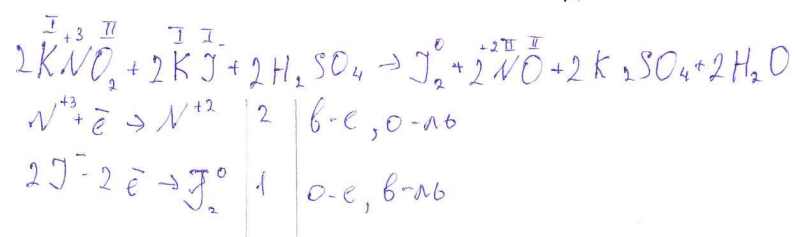 2K^I N^+3 O^II_2 + 2K^I J^I- + 2H_2SO_4 → J_2^0 + 2N^+2 II O^II + 2K_2SO_4 + 2H_2O
N^+3 + ē → N^+2 | 2 | в-е, о-ль
2J^- - 2ē → J_2^0 | 1 | о-е, в-ль